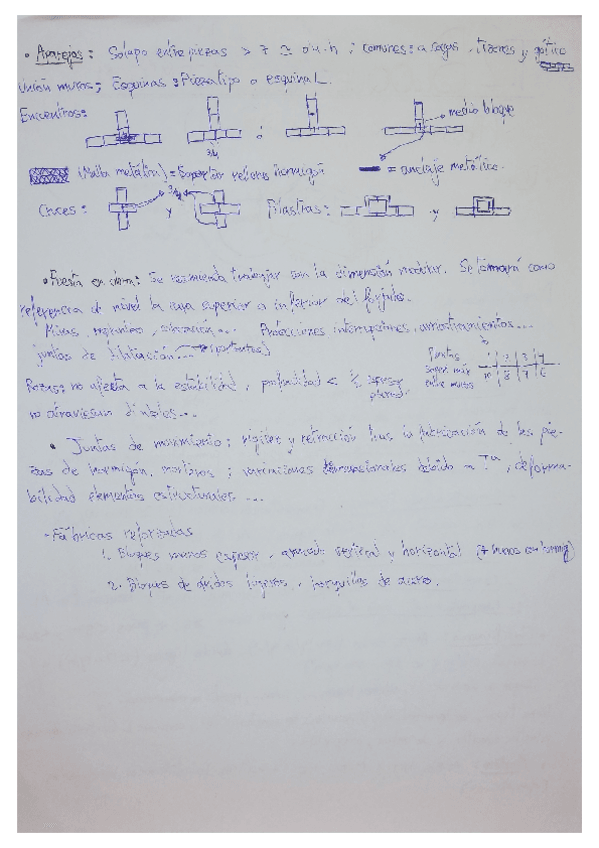 • Aparejos: Solapo entre piezas > 7 ≅ 0'4·h ; Comunes: a sogas, tizones y gótico
Unión muros; Esquinas: Pieza tipo o esquina L.
Encuentros:
3/4
ó
medio bloque
(Malla metálica) = Superficie hormigón
= anclaje metálico.
Cruces:
3/4
y
Pilastras:
y
• Puesta en obra: Se recomienda trabajar con la dimensión modular. Se tomará como
referencia de nivel la cara superior o inferior del forjado.
Protecciones, interrupciones, arriostramientos...
juntas de dilatación...
Juntas
entre muros
Rozas: no afecta a la estabilidad, profundidad <
no atraviesan
• Juntas de movimiento: rigidez y retracción tras la fabricación de las pie-
zas de hormigón, morteros; variaciones dimensionales debido a Tª, deforma-
bilidad elementos estructurales...
- Fábricas reforzadas
1. Bloques menos espesor, armado vertical y horizontal
2. Bloques de áridos ligeros, horquillas de acero.